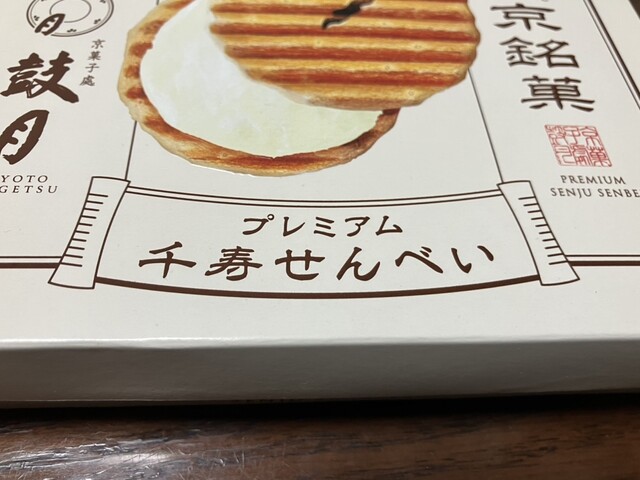 京銘菓
京菓子處
鼓月
YOTO
GETSU
PREMIUM
SENJU SENBE
プレミアム
千寿せんべい